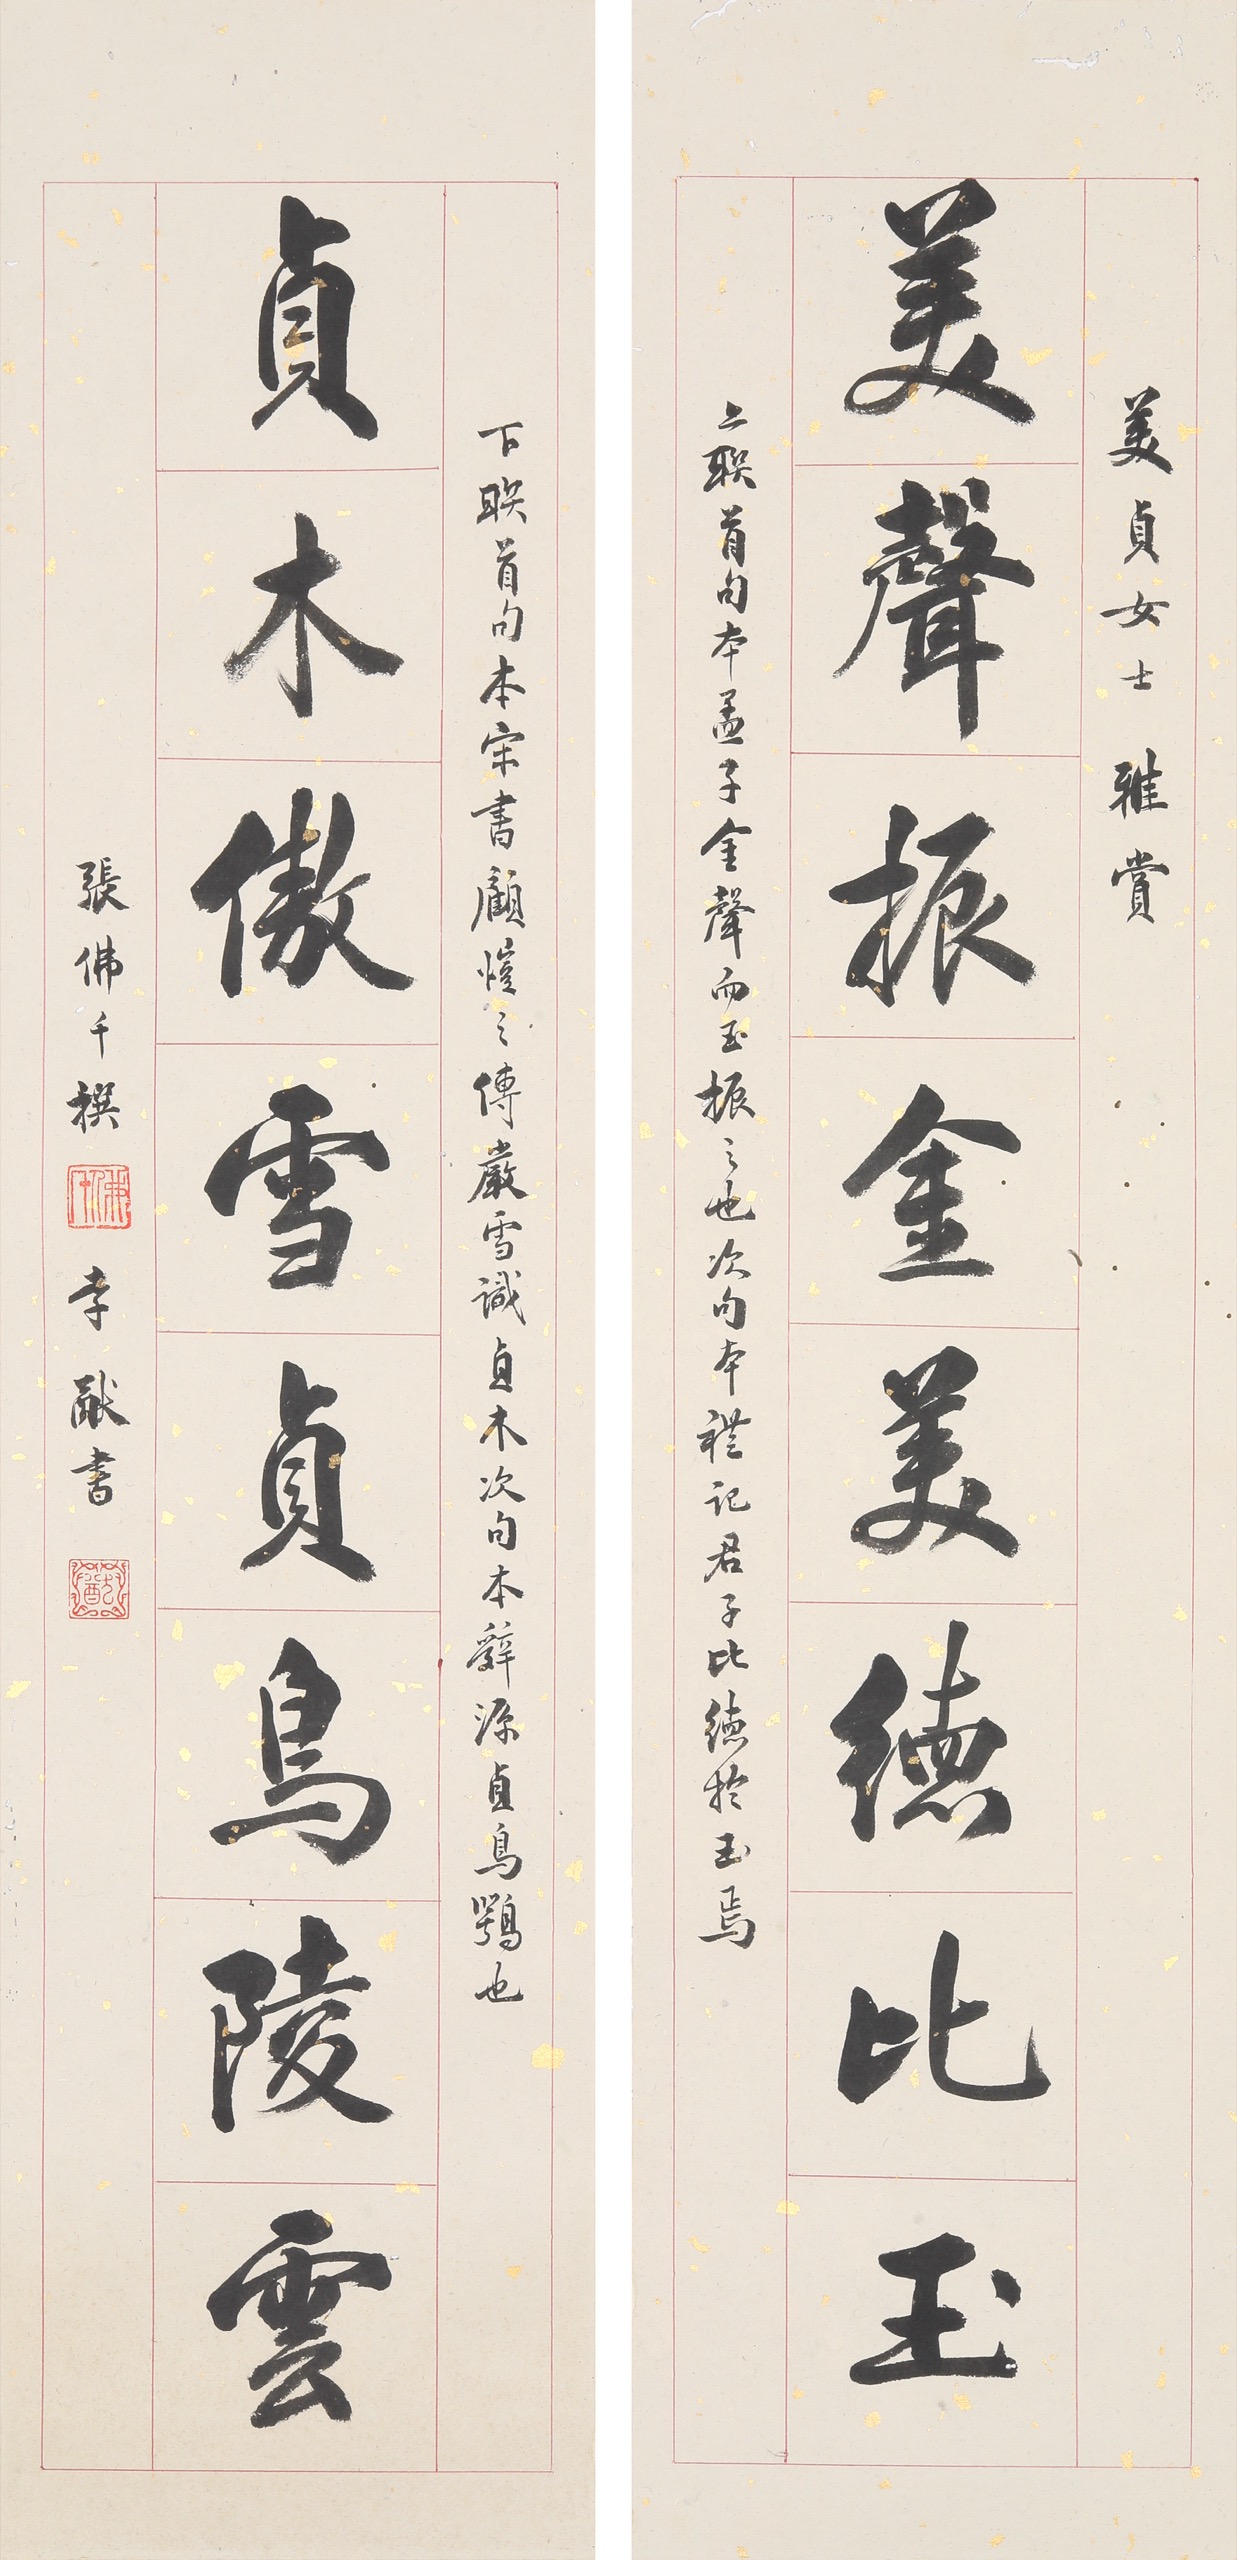 美貞女士 雅賞
美聲振金美德比玉
上聯首句本孟子金聲而玉振之也次句本禮記君子比德於玉焉
下聯首句本宋書顧愷之傳嚴雪識貞木次句本辭源貞鳥鶚也
貞木傲雪貞鳥陵雲
張佛千撰 佛千 李猷書